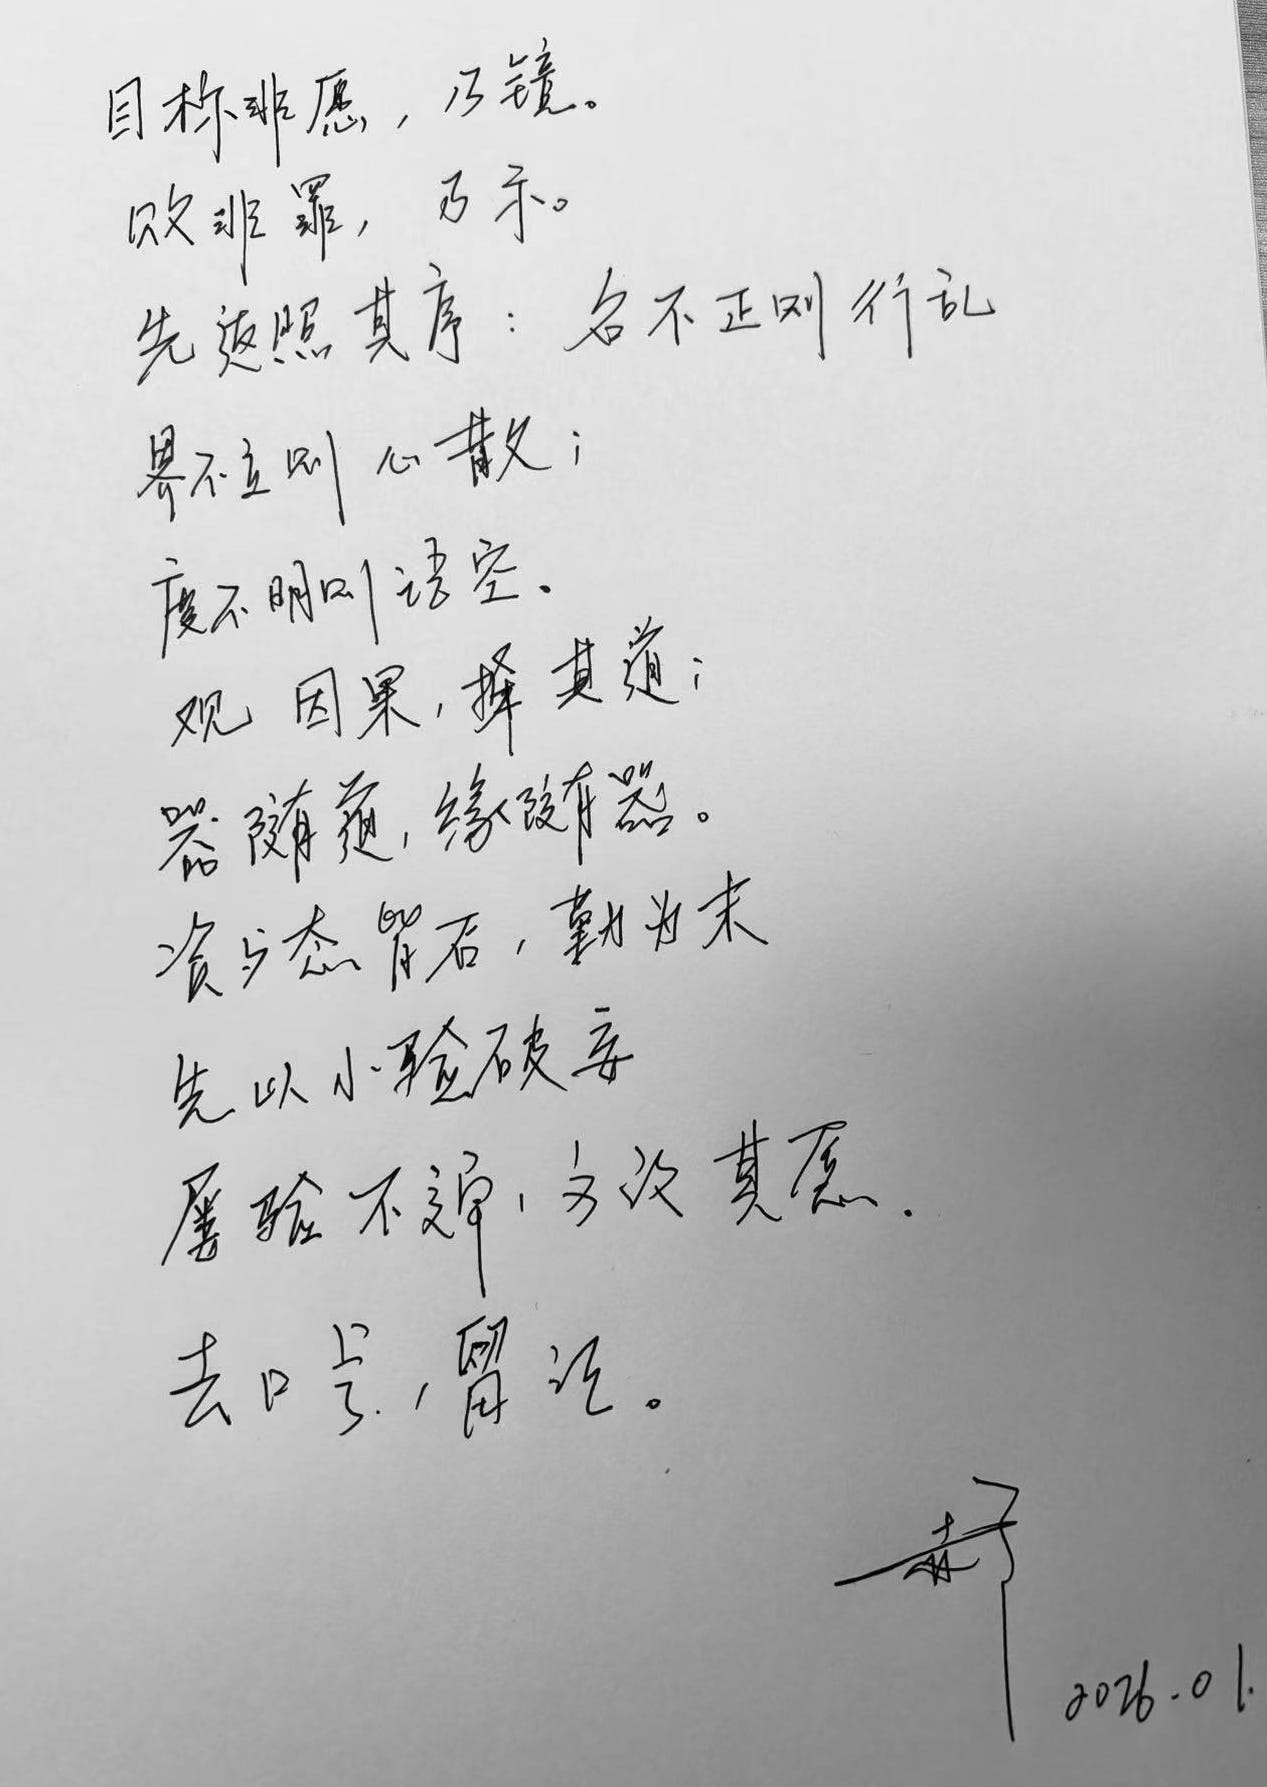 目标非愿，乃镜。
败非罪，乃示。
先返照其序：名不正则行乱
界不立则心散；
度不明则语空。
观因果，择其道；
器随道，缘随器。
资与态皆石，勤为末
先以小验破妄
屡验不谭，方议其愿．
去口号，留证。
郝
2026.01.